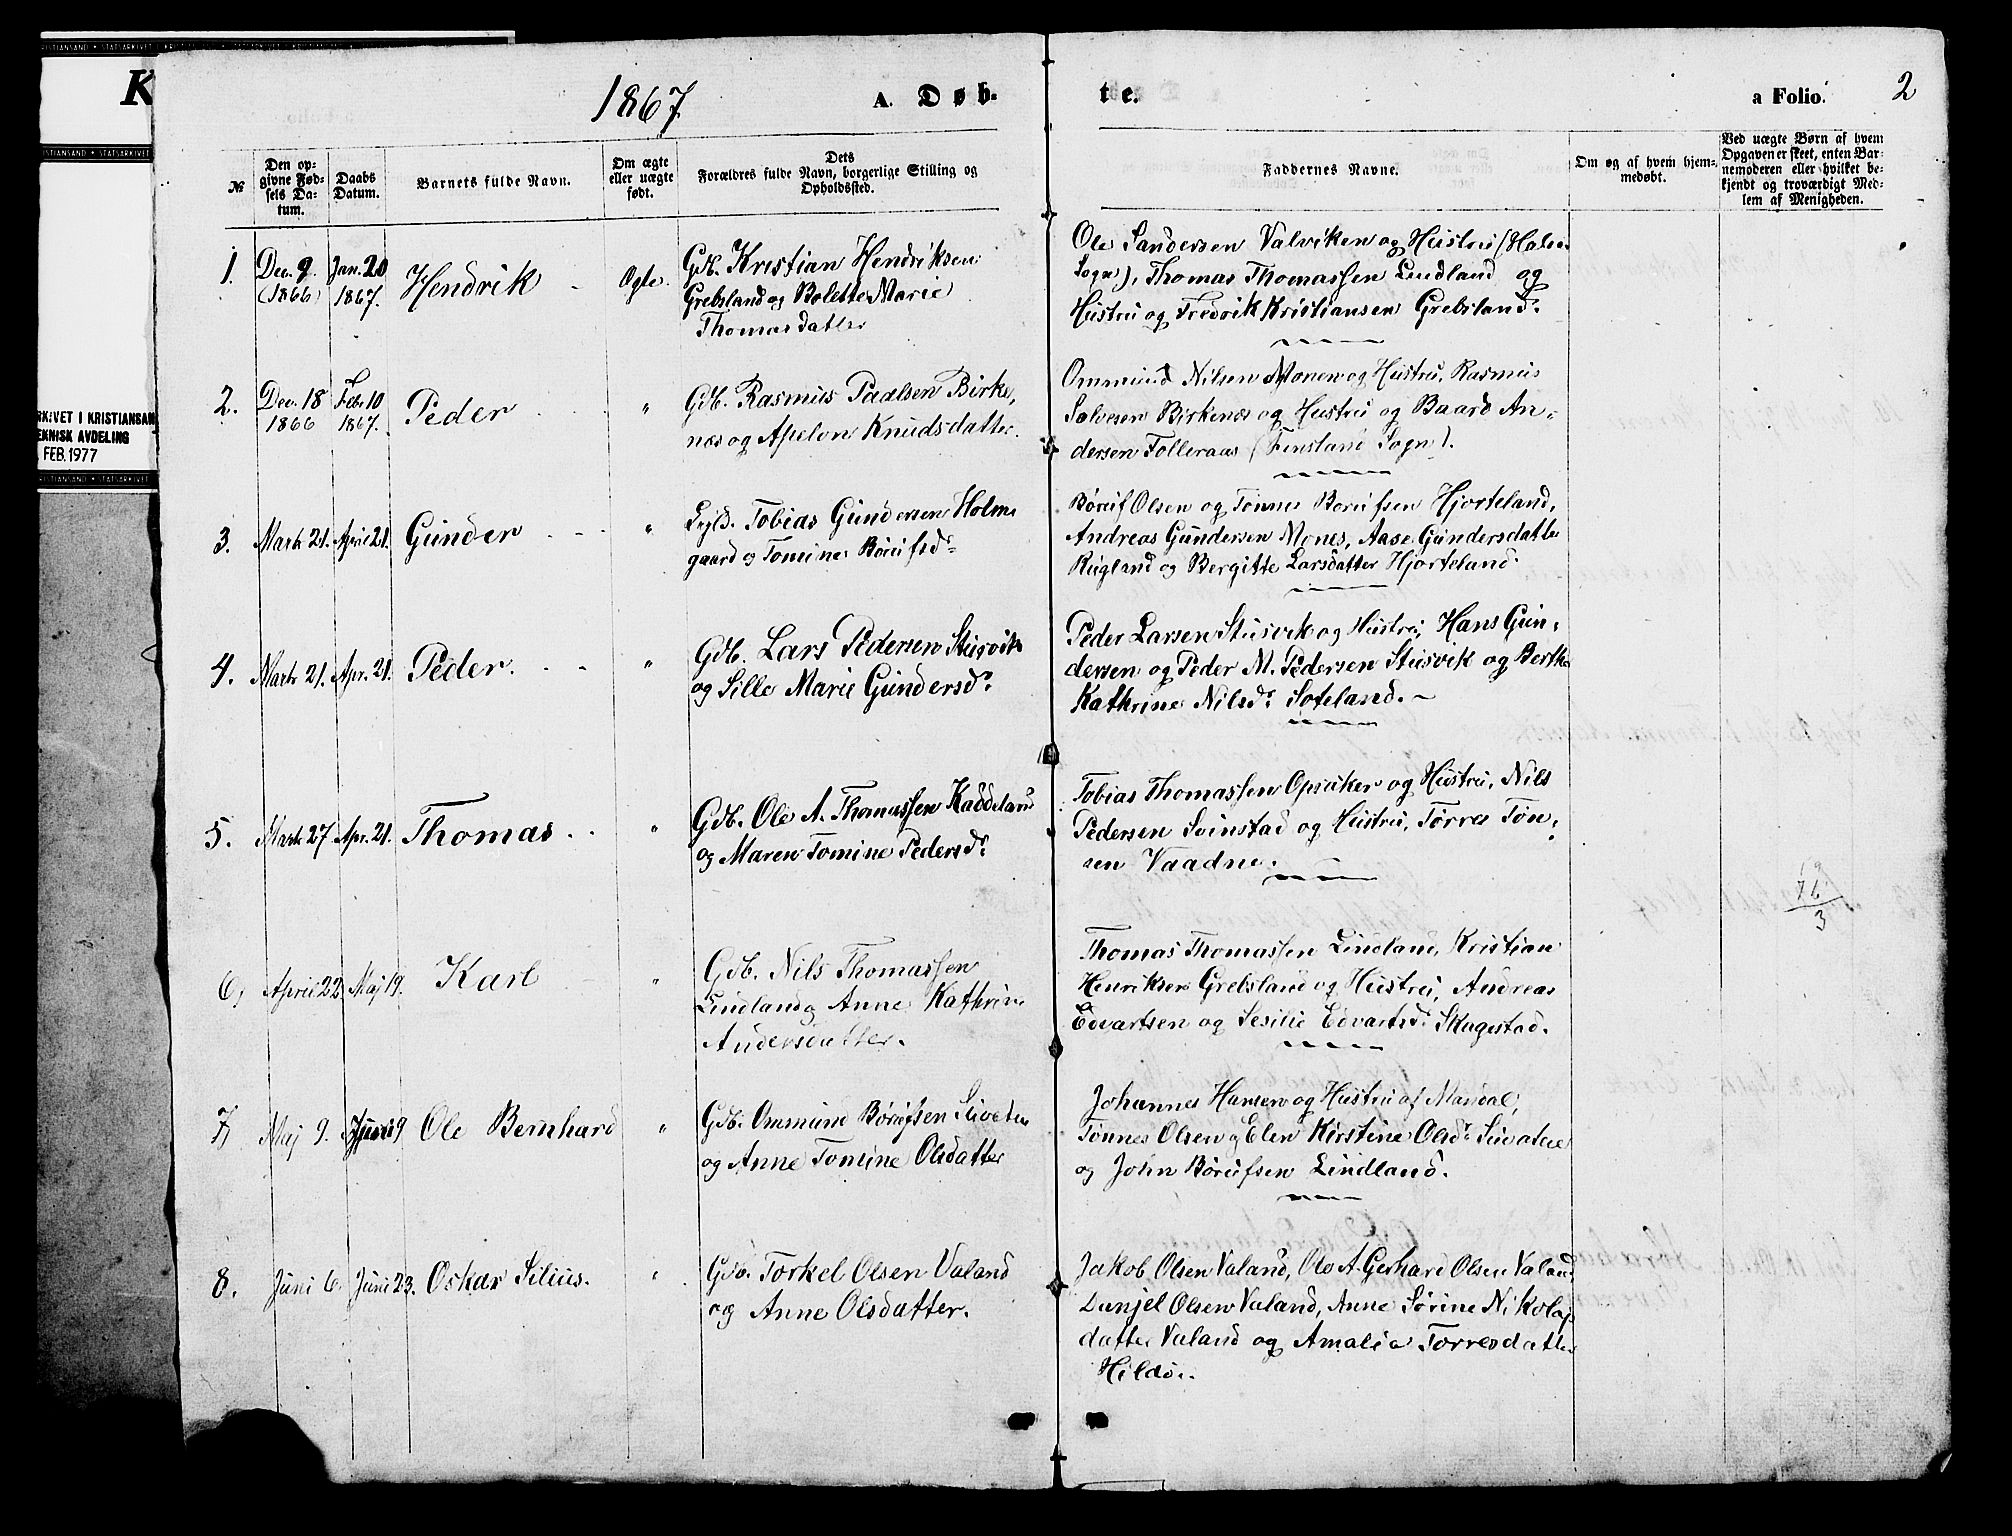 KRISTIANSAND • STATSARKIVET I KRISTIANSAND • STATSARKIVET I KRISTIANSAND
K
RKIVET I KRISTIANSAN
EKNISK AVDELING
FEB. 1977
1867.
A. Døb-
te.
a Folio.
2
№
Den opgivne Fødsels Datum.
Daabs Datum.
Barnets fulde Navn.
Om ægte eller uægte født.
Dets Forældres fulde Navn, borgerlige Stilling og Opholdssted.
Faddernes Navne.
Om og af hvem hjemmedøbt.
Ved uægte Børn af hvem Opgaven er skeet, enten Barnemoderen eller hvilket bekjendt og troværdigt Medlem af Menigheden.
1. Dec. 9. (1866) Jan. 20 1867. Hendrik Ægte.
Gdb. Kristian Hendriksen
Grebsland og Bolette Marie
Thomasdatter
Ole Sandersen Valviken og Hustru (Halse
Sogn), Thomas Thomassen Lindland og
Hustru og Fredrik Kristiansen Grebsland.
2. Dec. 18 1866 Febr. 10 1867. Peder "
Gdb. Rasmus Paalsen Birke,
næs og Apelon Knudsdatter.
Ommund Nilsen Monen og Hustru, Rasmus
Salvesen Birkenæs og Hustru og Baard An-
dersen Folleraas (Finsland Sogn).
3. Marts 21. April 21. Gunder "
Tobias Gundersen Holme
gaard og Tomine Børufsd.
Børuf Olsen og Tønnes Børufsen Hjorteland,
Andreas Gundersen Mones, Aase Gundersdatter
Rugland og Bergitte Larsdatter Hjorteland.
4. Marts 21. Apr. 21. Peder. "
Gdb. Lars Pedersen Stusvik
og Sille Marie Gundersd.
Peder Larsen Stusvik og Hustru, Hans Gun-
dersen og Peder M. Pedersen Stusvik og Berthe
Kathrine Nilsd. Soteland.
5. Marts 27 Apr. 21. Thomas "
Gdb. Ole A. Thomassen Kaddeland
og Maren Tomine Pedersd.
Tobias Thomassen Opsaker og Hustru, Nils
Pedersen Svinstad og Hustru, Tørres Tøn-
sen Vaadne.
6, April 22. Maj 19. Karl "
Gdb. Nils Thomassen
Lindland og Anne Kathrine
Andersdatter.
Thomas Thomassen Lindland, Kristian
Henriksen Grebsland og Hustru, Andreas
Edvartsen og Sesilie Edvartsd. Skagestad.
76
3
7, Maj 9. Juni 9 Ole Bernhard "
Gdb. Ommund Børufsen
og Anne Tomine Olsdatter
Johannes Hansen og Hustru af Mandal,
Tønnes Olsen og Elen Kirstine Olsd.
og John Børufsen Lindland.
8. Juni 6. Juni 23. Oskar Silius. "
Gdb. Torkel Olsen Valand
og Anne Olsdatter.
Jakob Olsen Valand, Ole A. Gerhard Olsen Valand
Danjel Olsen Valand, Anne Sørine Nikolaj
datter Valand og Amalia Torresdatter
Hildø.